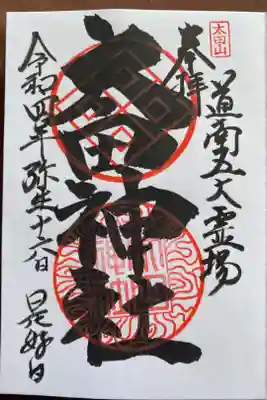 太田山
道南五大霊場
奉拝
太田神社
令和四年 弥生十六日 是好日